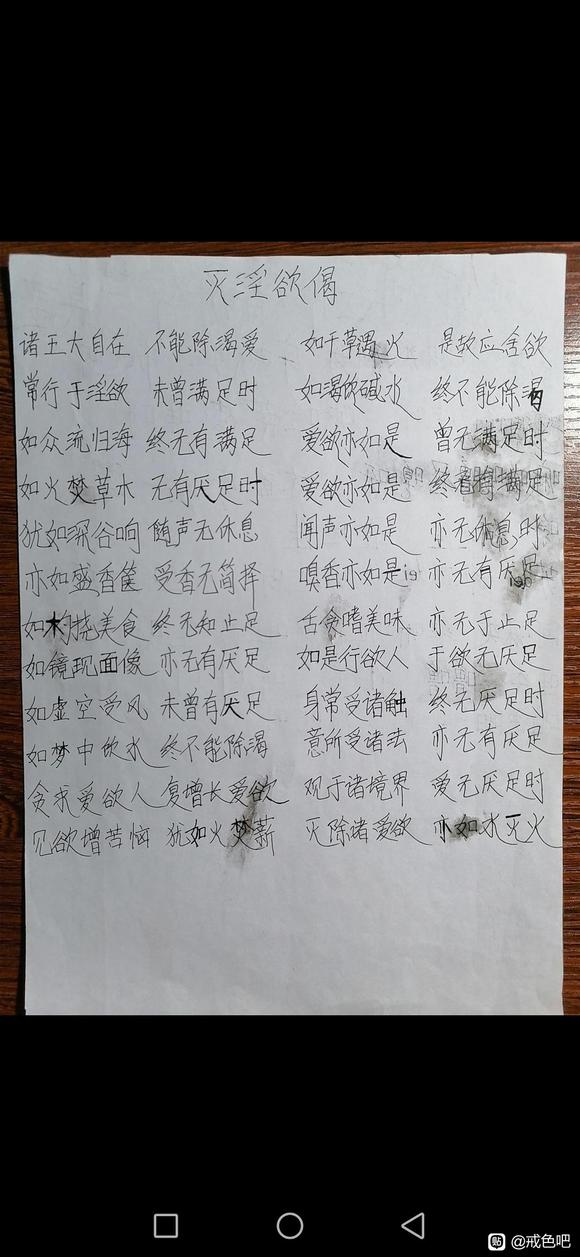 灭淫欲偈
诸王大自在 不能除渴爱 如干草遇火 是故应舍欲
常行于淫欲 未曾满足时 如渴饮碱水 终不能除渴
如众流归海 终无有满足 爱欲亦如是 曾无满足时
如火焚草木 无有厌足时 爱欲亦如是 终无有满足
犹如深谷响 随声无休息 闻声亦如是 亦无休息时
亦如盛香箧 受香无简择 嗅香亦如是 亦无有厌足
如杓挠美食 终无知止足 舌贪嗜美味 亦无于止足
如镜现面像 亦无有厌足 如是行欲人 于欲无厌足
如虚空受风 未曾有厌足 身常受诸触 终无厌足时
如梦中饮水 终不能除渴 意所受诸法 亦无有厌足
贪求爱欲人 复增长爱欲 观于诸境界 爱无厌足时
见欲增苦恼 犹如火焚薪 灭除诸爱欲 亦如水灭火
贴 @戒色吧